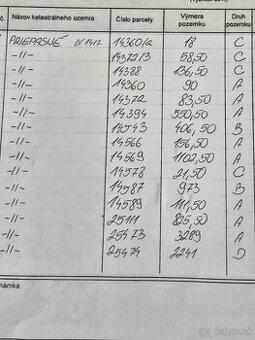 Názov katastrálneho územia Číslo parcely Výmera pozemku Druh pozemku
PRIEPASNÉ LV 1417 14360/2 18 C
-11- 14372/3 58,50 C
-11- 14388 136,50 C
-11- 14360 90 A
-11- 14372 83,50 A
-11- 14394 550,50 A
-11- 14543 406,50 B
-11- 14566 156,50 A
-11- 14569 1102,50 A
-11- 14578 21,50 C
-11- 14587 973 B
-11- 14589 111,50 A
-11- 25111 825,50 A
-11- 25473 3289 A
-11- 25474 2241 D
námka
bazos.sk